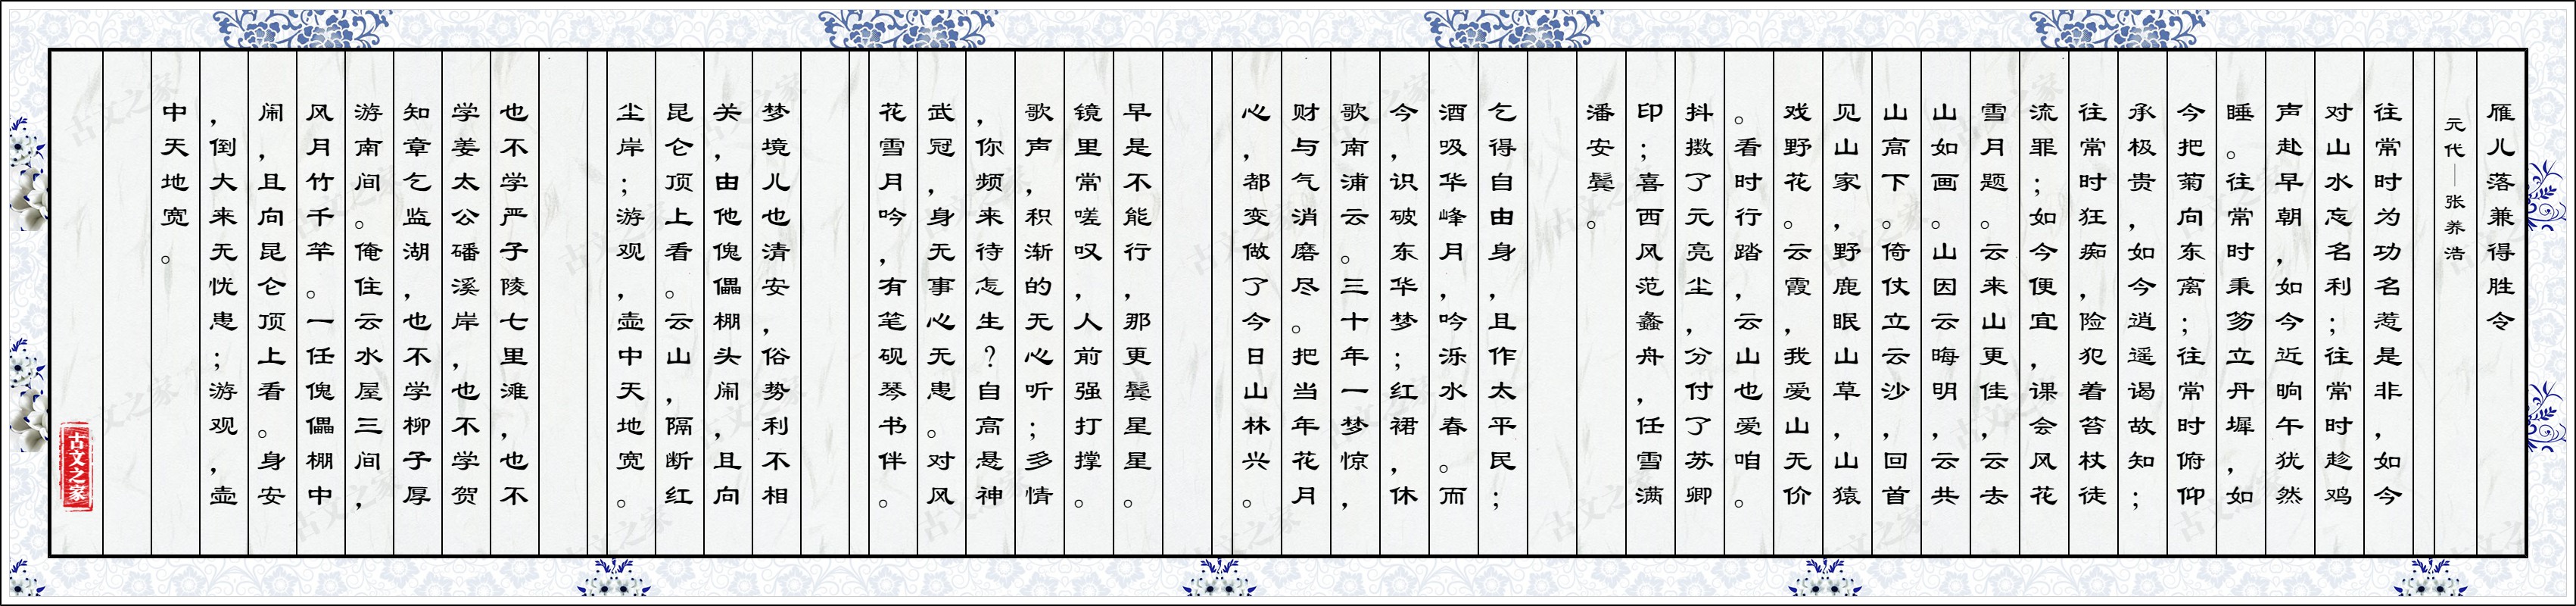 雁儿落兼得胜令
元代—张养浩
往常时为功名惹是非，如今
对山水忘名利；往常时趁鸡
声赴早朝，如今近晌午犹然
睡。往常时秉笏立丹墀，如
今把菊向东离；往常时俯仰
承极贵，如今逍遥谒故知；
往常时狂痴，险犯着笞杖徒
流罪；如今便宜，课会风花
雪月题。云来山更佳，云去
山如画。山因云晦明，云共
山高下。倚仗立云沙，回首
见山家，野鹿眠山草，山猿
戏野花。云霞，我爱山无价
。看时行踏，云山也爱咱。
抖擞了元亮尘，分付了苏卿
印；喜西风范蠡舟，任雪满
潘安鬓。
乞得自由身，且作太平民；
酒吸华峰月，吟泺水春。而
今，识破东华梦；红裙，休
歌南浦云。三十年一梦惊，
财与气消磨尽。把当年花月
心，都变做了今日山林兴。
早是不能行，那更鬓星星。
镜里常嗟叹，人前强打撑。
歌声，积渐的无心听；多情
，你频来待怎生？自高悬神
武冠，身无事心无患。对风
花雪月吟，有笔砚琴书伴。
梦境儿也清安，俗势利不相
关，由他傀儡棚头闹，且向
昆仑顶上看。云山，隔断红
尘岸；游观，壶中天地宽。
也不学严子陵七里滩，也不
学姜太公磻溪岸，也不学贺
知章乞监湖，也不学柳子厚
游南间。俺住云水屋三间，
风月竹千竿。一任傀儡棚中
闹，且向昆仑顶上看。身安
，倒大来无忧患；游观，壶
中天地宽。
古文之家